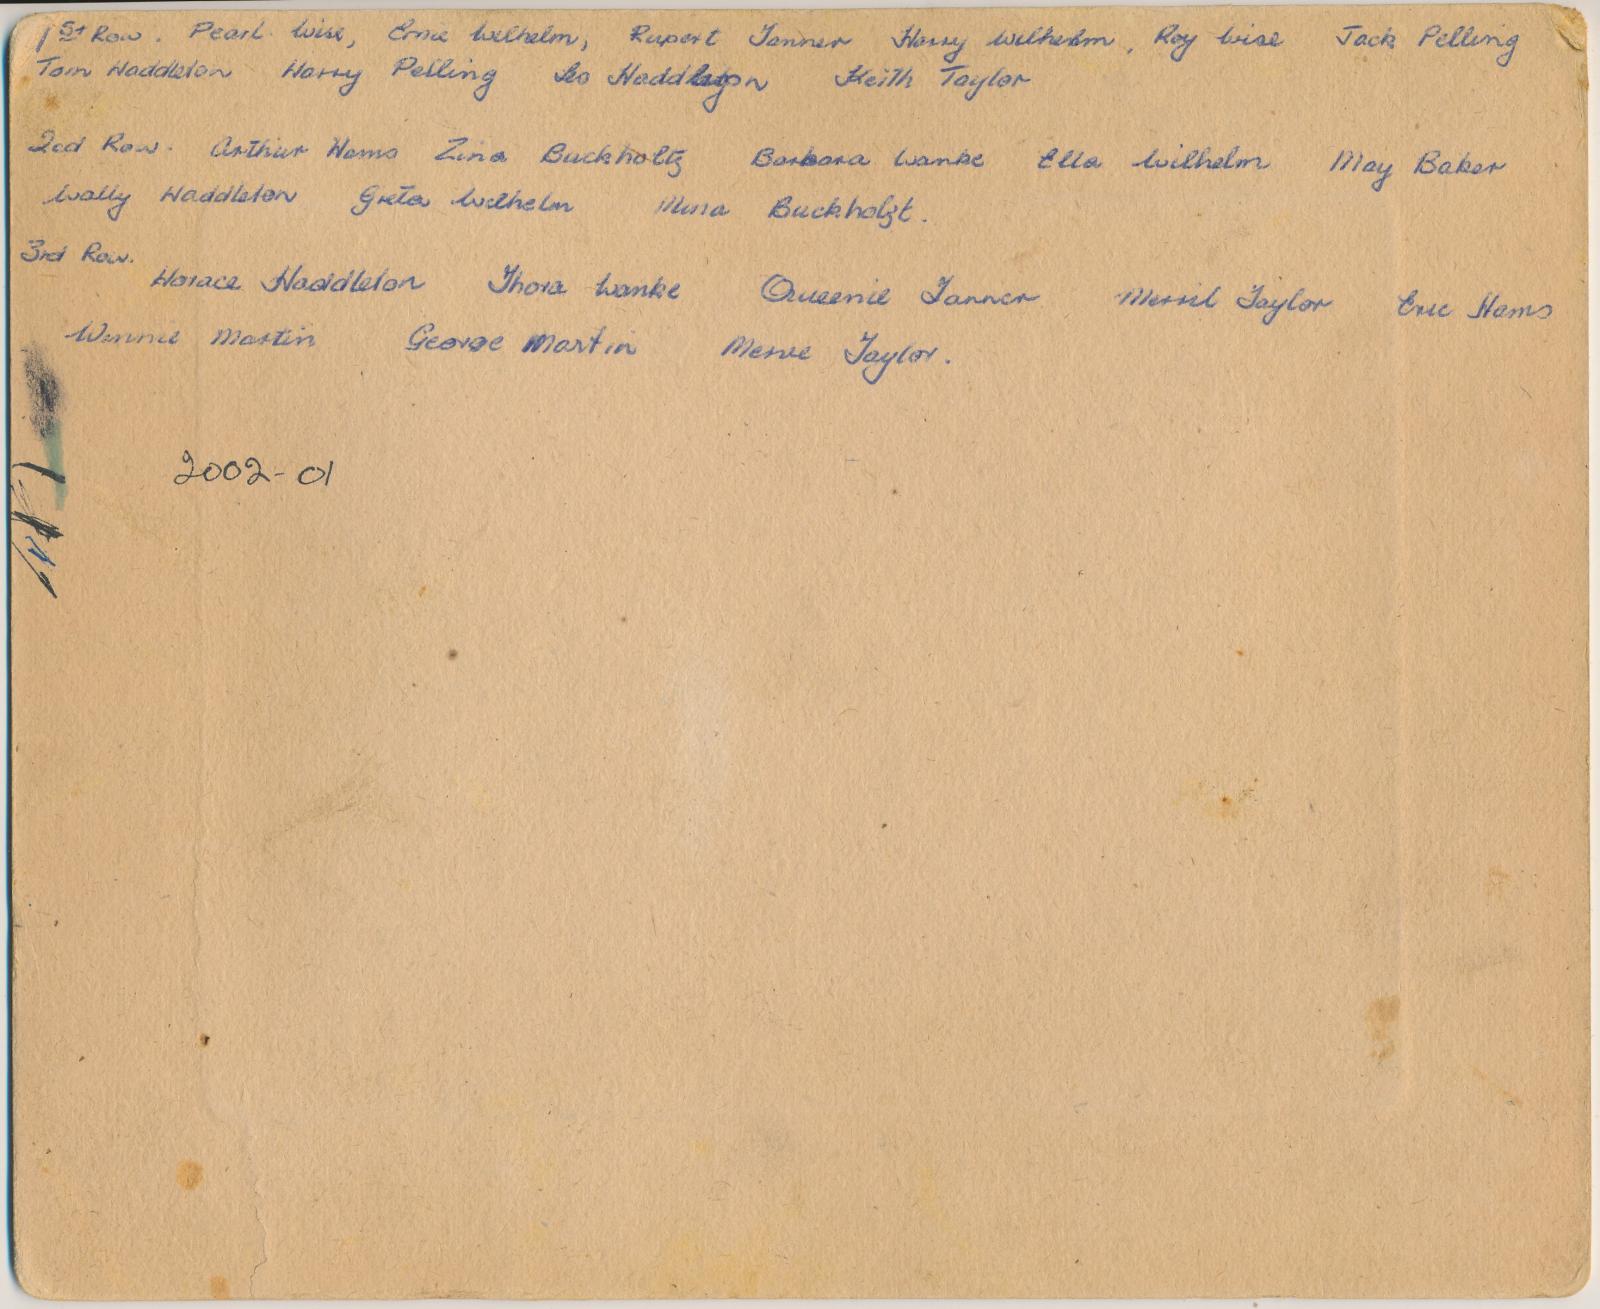 1st Row. Pearl Wise, Ernie Wilhelm, Rupert Tanner Harry Wilhelm, Roy Wise Jack Pelling
Tom Haddleton Harry Pelling Leo Haddleton Keith Taylor
2nd Row. Arthur Hams Zina Buckholtz Barbara Wanke Ella Wilhelm May Baker
Wally Haddleton Greta Wilhelm Mina Buckholzt.
3rd Row.
Horace Haddleton Thora Wanke Queenie Tanner Merril Taylor Eric Hams
Winnie Martin George Martin Merve Taylor.
2002-01